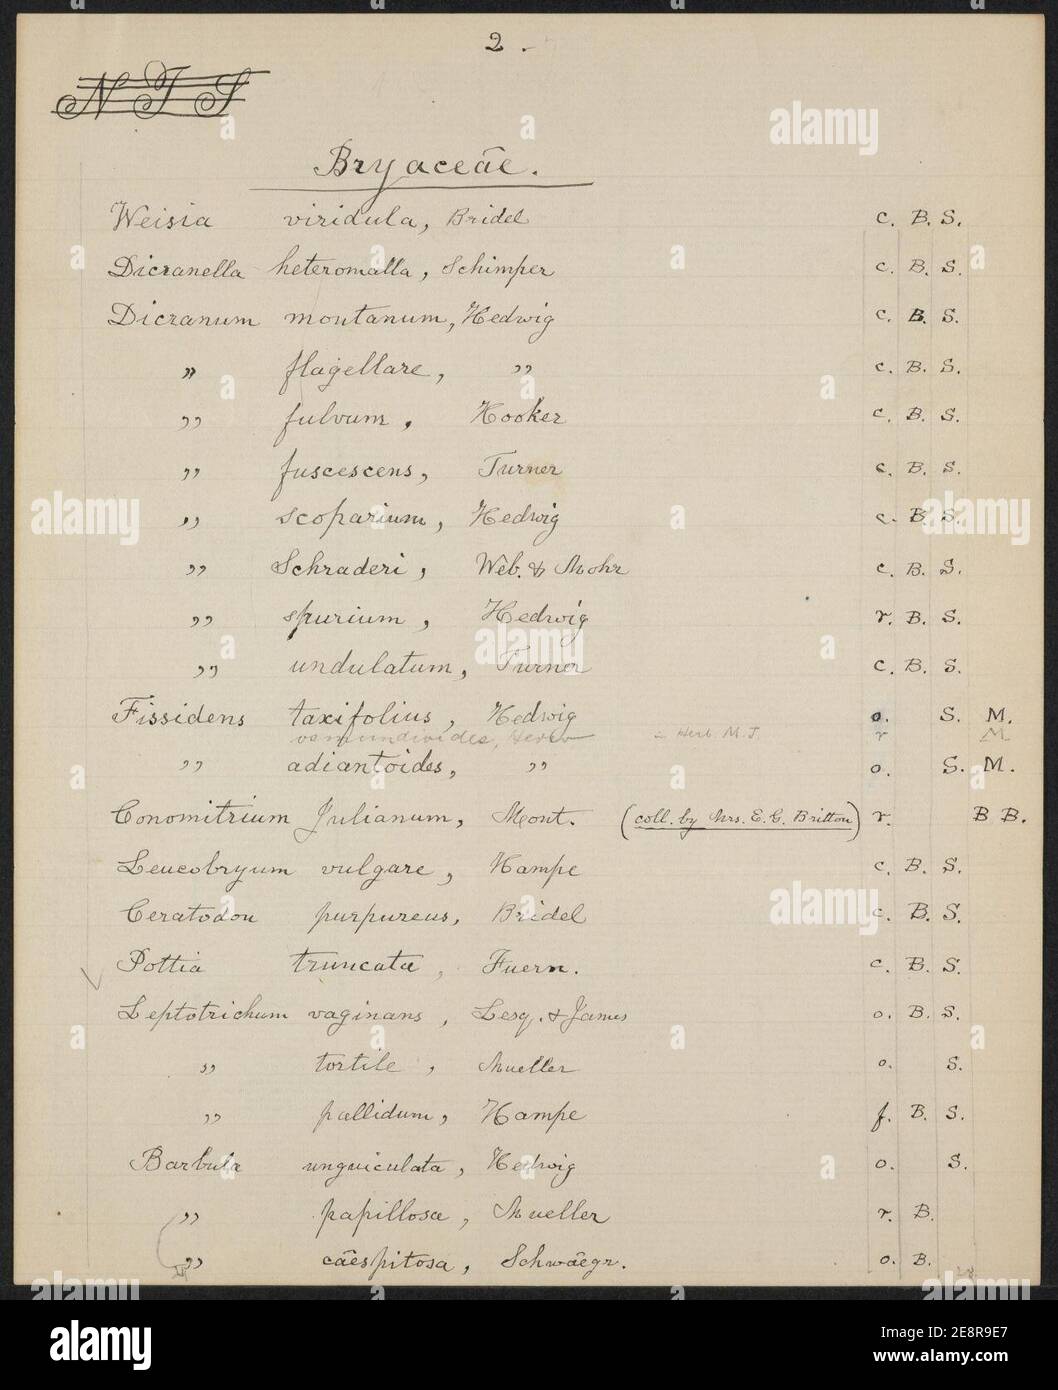 2.
N J S
Bryaceāe.
Weisia viridula, Bridel c. B. S.
Dicranella heteromalla, Schimper c. B. S.
Dicranum montanum, Hedwig c. B. S.
" flagellare, " c. B. S.
" fulvum, Hooker c. B. S.
" fuscescens, Turner c. B. S.
" scoparium, Hedwig c. B. S.
" Schraderi, Web. & Mohr c. B. S.
" spurium, Hedwig r. B. S.
" undulatum, Turner c. B. S.
Fissidens taxifolius, Hedwig o. S. M.
in Herb. M. J. r M
" adiantoides, " o. S. M.
Conomitrium Julianum, Mont. (coll. by Mrs. E. G. Britton) r. B B.
Leucobryum vulgare, Hampe c. B. S.
Ceratodon purpureus, Bridel c. B. S.
Pottia truncata, Fuern. c. B. S.
Leptotrichum vaginans, Lesq. & James o. B. S.
" tortile, Mueller o. S.
" pallidum, Hampe f. B. S.
Barbula unguiculata, Hedwig o. S.
" papillosa, Mueller r. B.
" cāespitosa, Schwāegr. o. B.
alamy
Image ID: 2E8R9E7
www.alamy.com